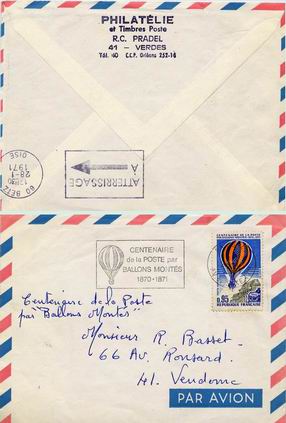 PHILATÉLIE
et Timbres Poste
R.C. PRADEL
41 - VERDES
Tél. 40 C.C.P. Orléans 252-16
ATTERRISSAGE
À
60 BETZ
OISE
28-1
1971
CENTENAIRE
de la POSTE par
BALLONS MONTÉS
1870-1871
CENTENAIRE DE LA POSTE
0,95
REPUBLIQUE FRANCAISE
Centenaire de la Poste
par "Ballons Montés"
Monsieur R. Basset-
66 Av. Ronsard.
41. Vendome
PAR AVION